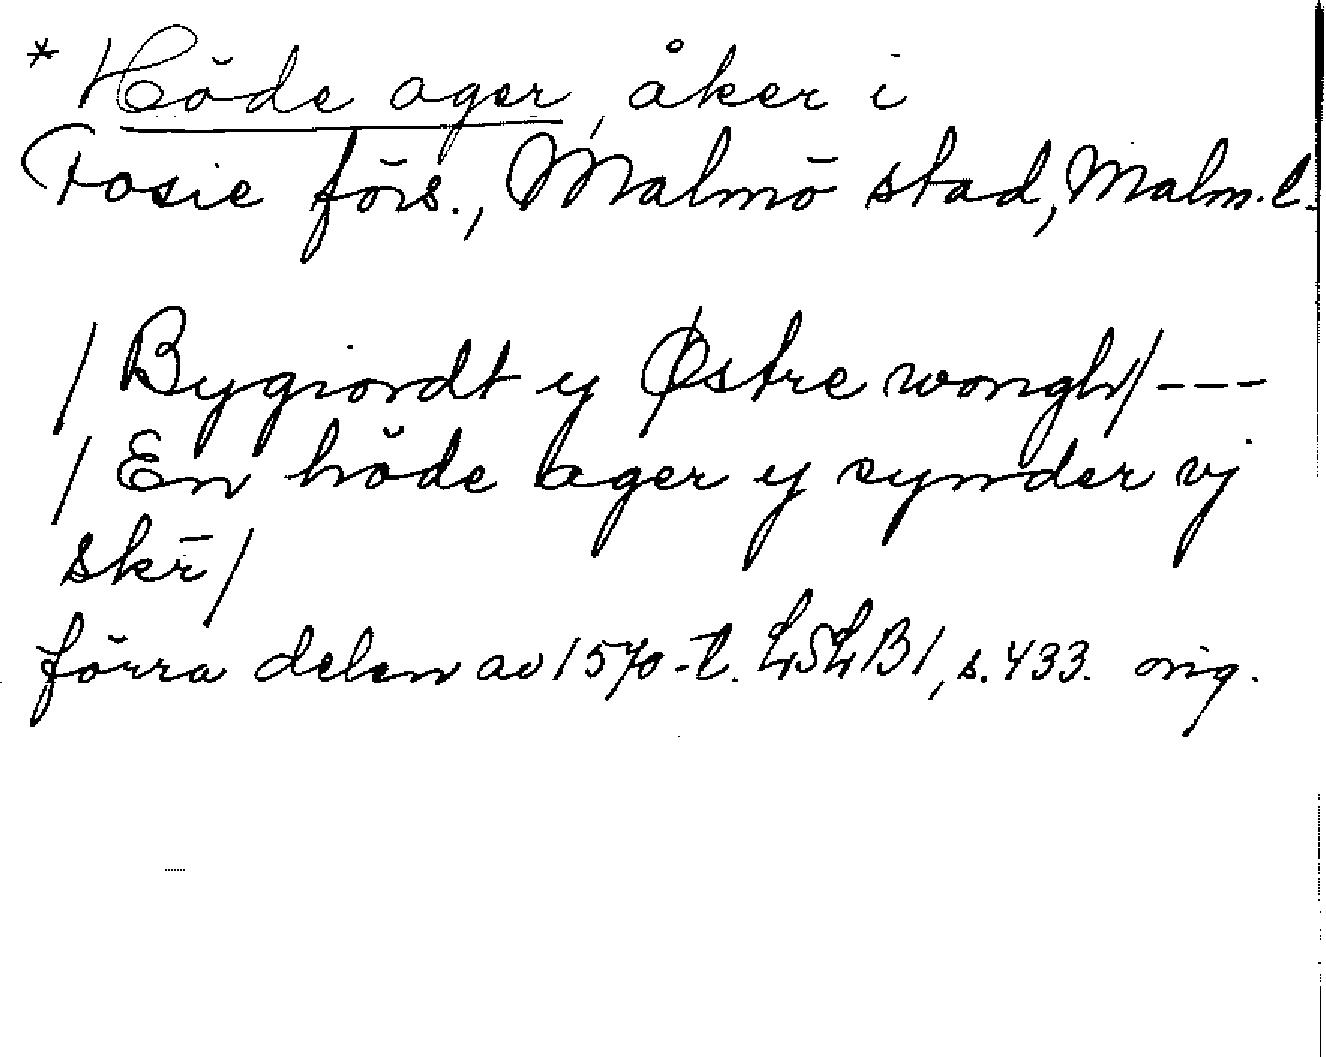 * Höde ager, åker i
Fosie förs., Malmö stad, Malm. l.
/ Bygiordt y Østre wongh/ ---
/ En höde ager y synder vj
skr̄ /
förra delen av 1570-t. LSLB1, s. 433. orig.